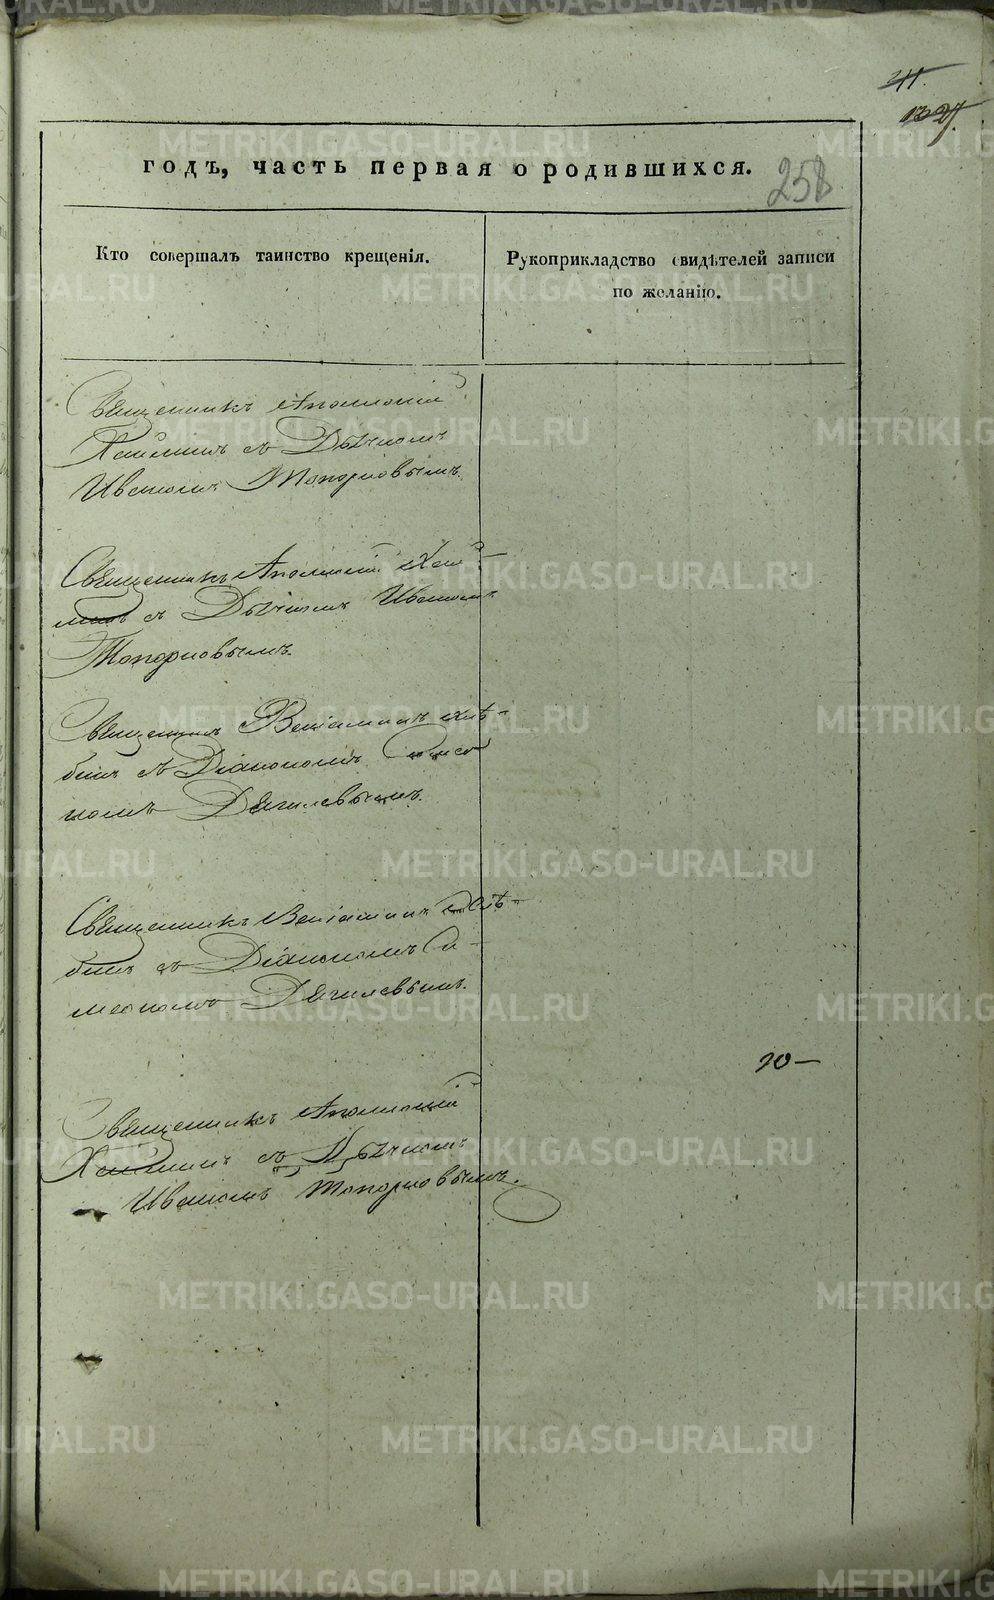 годъ, часть первая о родившихся.
258
Кто совершалъ таинство крещенія.
Рукоприкладство свидѣтелей записи
по желанію.
Священникъ Аполлоній
съ Дьячкомъ
Иваномъ Топорковымъ.
Священникъ Аполлоній
съ Дьячкомъ Иваномъ
Топорковымъ.
Священникъ Веніаминъ Хлѣ-
бинъ съ Діакономъ Симео
номъ Дягилевымъ.
Священникъ Веніаминъ Хлѣ-
бинъ съ Діакономъ Си-
меономъ Дягилевымъ.
Священникъ Аполлоній
съ Дьячкомъ
Иваномъ Топорковымъ.
METRIKI.GASO-URAL.RU